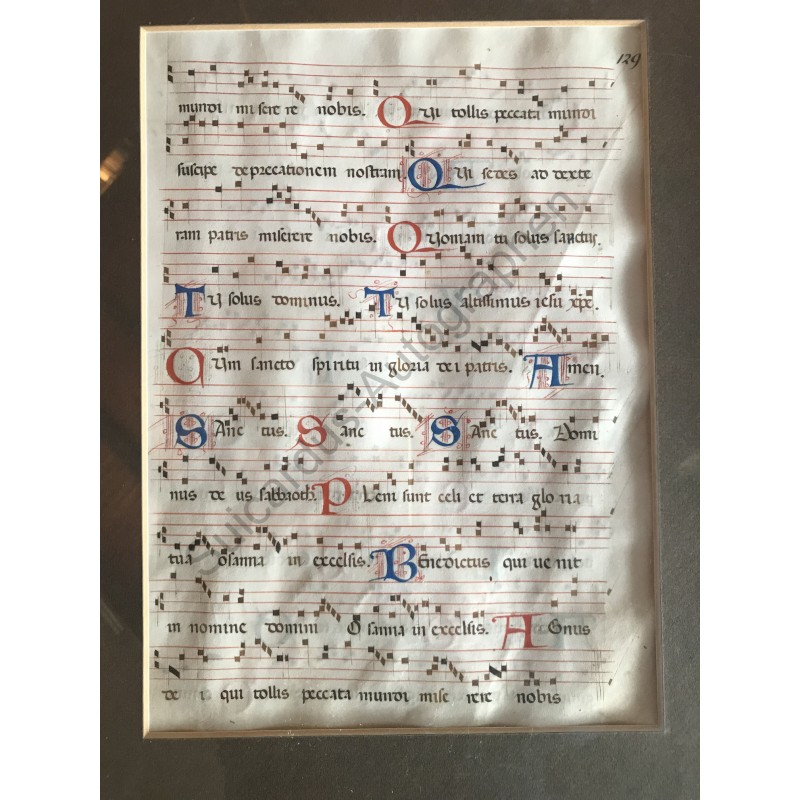 129
mundi miserere nobis. QUi tollis peccata mundi
suscipe deprecationem nostram. QUi sedes ad dexte
ram patris miserere nobis. QUoniam tu solus sanctus.
TU solus dominus. TU solus altissimus iesu xpe.
CUm sancto spiritu in gloria dei patris. Amen.
SAnc tus. SAnc tus. SAnc tus. Domi
nus de us sabbaoth. PLeni sunt celi et terra gloria
tua osanna in excelsis. BEnedictus qui uenit
in nomine domini Osanna in excelsis. AGnus
de i qui tollis peccata mundi mise rere nobis
Suicardus-Autographen